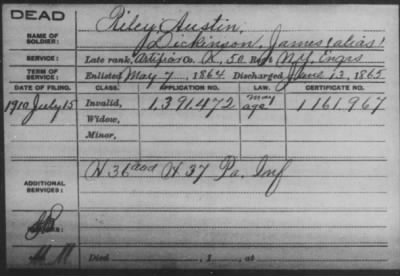 DEAD
NAME OF SOLDIER: Riley, Austin.
Dickinson, James (alias)
SERVICE: Late rank, Artificer Co. K, 50 Reg't N.Y. Engrs
TERM OF SERVICE: Enlisted May 7, 1864 Discharged June 13, 1865
DATE OF FILING. CLASS. APPLICATION NO. LAW. CERTIFICATE NO.
1910 July 15 Invalid, 1,391,472 may age 1,161,967
Widow,
Minor,
ADDITIONAL SERVICES: H 36 and H 37 Pa. Inf
Died , 1 , at